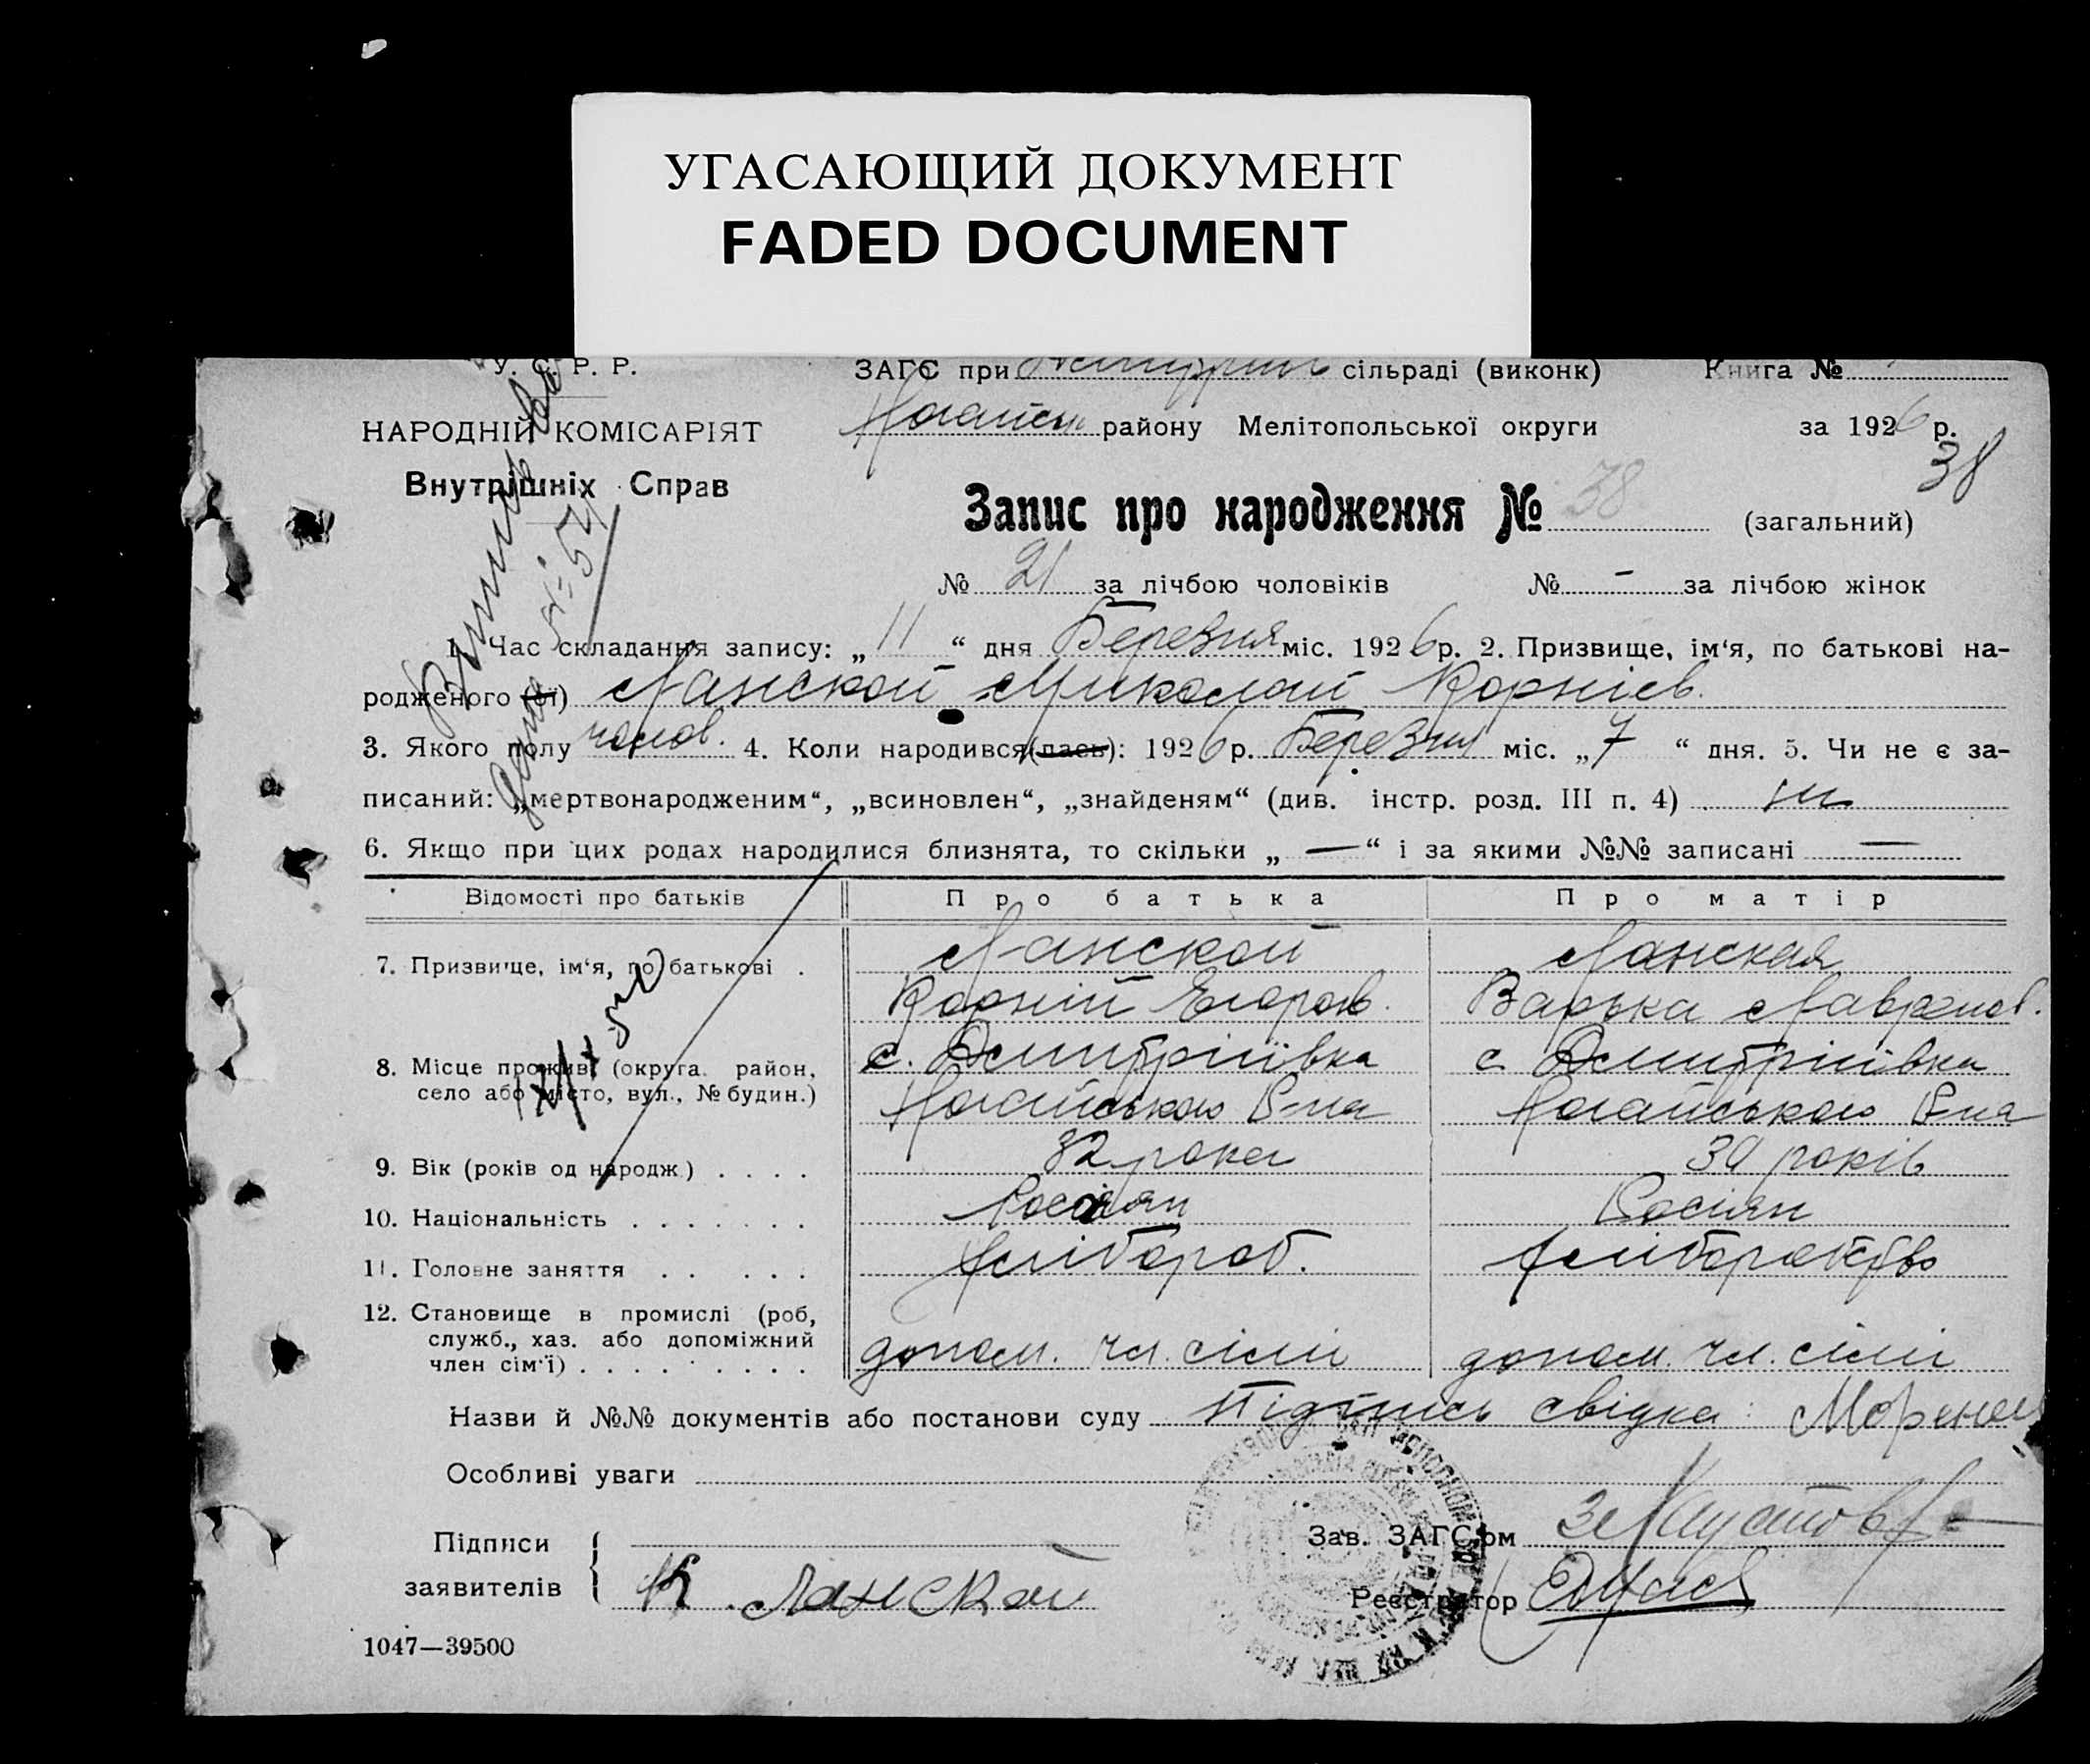 УГАСАЮЩИЙ ДОКУМЕНТ
FADED DOCUMENT
У. С. Р. Р.
ЗАГС при сільраді (виконк) Книга №
НАРОДНІЙ КОМІСАРІЯТ
Внутрішніх Справ
району Мелітопольської округи за 1926 р.
38
Запис про народження № 38 (загальний)
№ 21 за лічбою чоловіків № — за лічбою жінок
1. Час складання запису: „11“ дня Березня міс. 1926 р. 2. Призвище, ім‘я, по батькові на-
родженого (ої) Ланской Миколай Корніев.
3. Якого полу чолов. 4. Коли народився (лась): 1926 р. Березня міс. „7“ дня. 5. Чи не є за-
писаний: „мертвонародженим“, „всиновлен“, „знайденям“ (див. інстр. розд. III п. 4) ні
6. Якщо при цих родах народилися близнята, то скільки „—“ і за якими №№ записані —
Відомості про батьків Про батька Про матір
7. Призвище, ім‘я, по батькові . Ланской Ланская
Корній Егоров. Варька
8. Місце прожив. (округа район, с. Дмитріївка с. Дмитріївка
село або місто, вул., № будин.) Ногайського Р-на Ногайського Р-на
9. Вік (років од народж.) . . . . 32 рока років
10. Національність . . . . . . . Росіян Росіян
11. Головне заняття . . . . . Хлібороб. Хліборобство
12. Становище в промислі (роб,
служб., хаз. або допоміжний
член сім‘ї) . . . . . . . . . допом. чл. сімі допом. чл. сімі
Назви й №№ документів або постанови суду Підпись свідка:
Особливі уваги
Підписи
заявителів К. Ланской
Зав. ЗАГС‘ом
Реєстратор
1047—39500